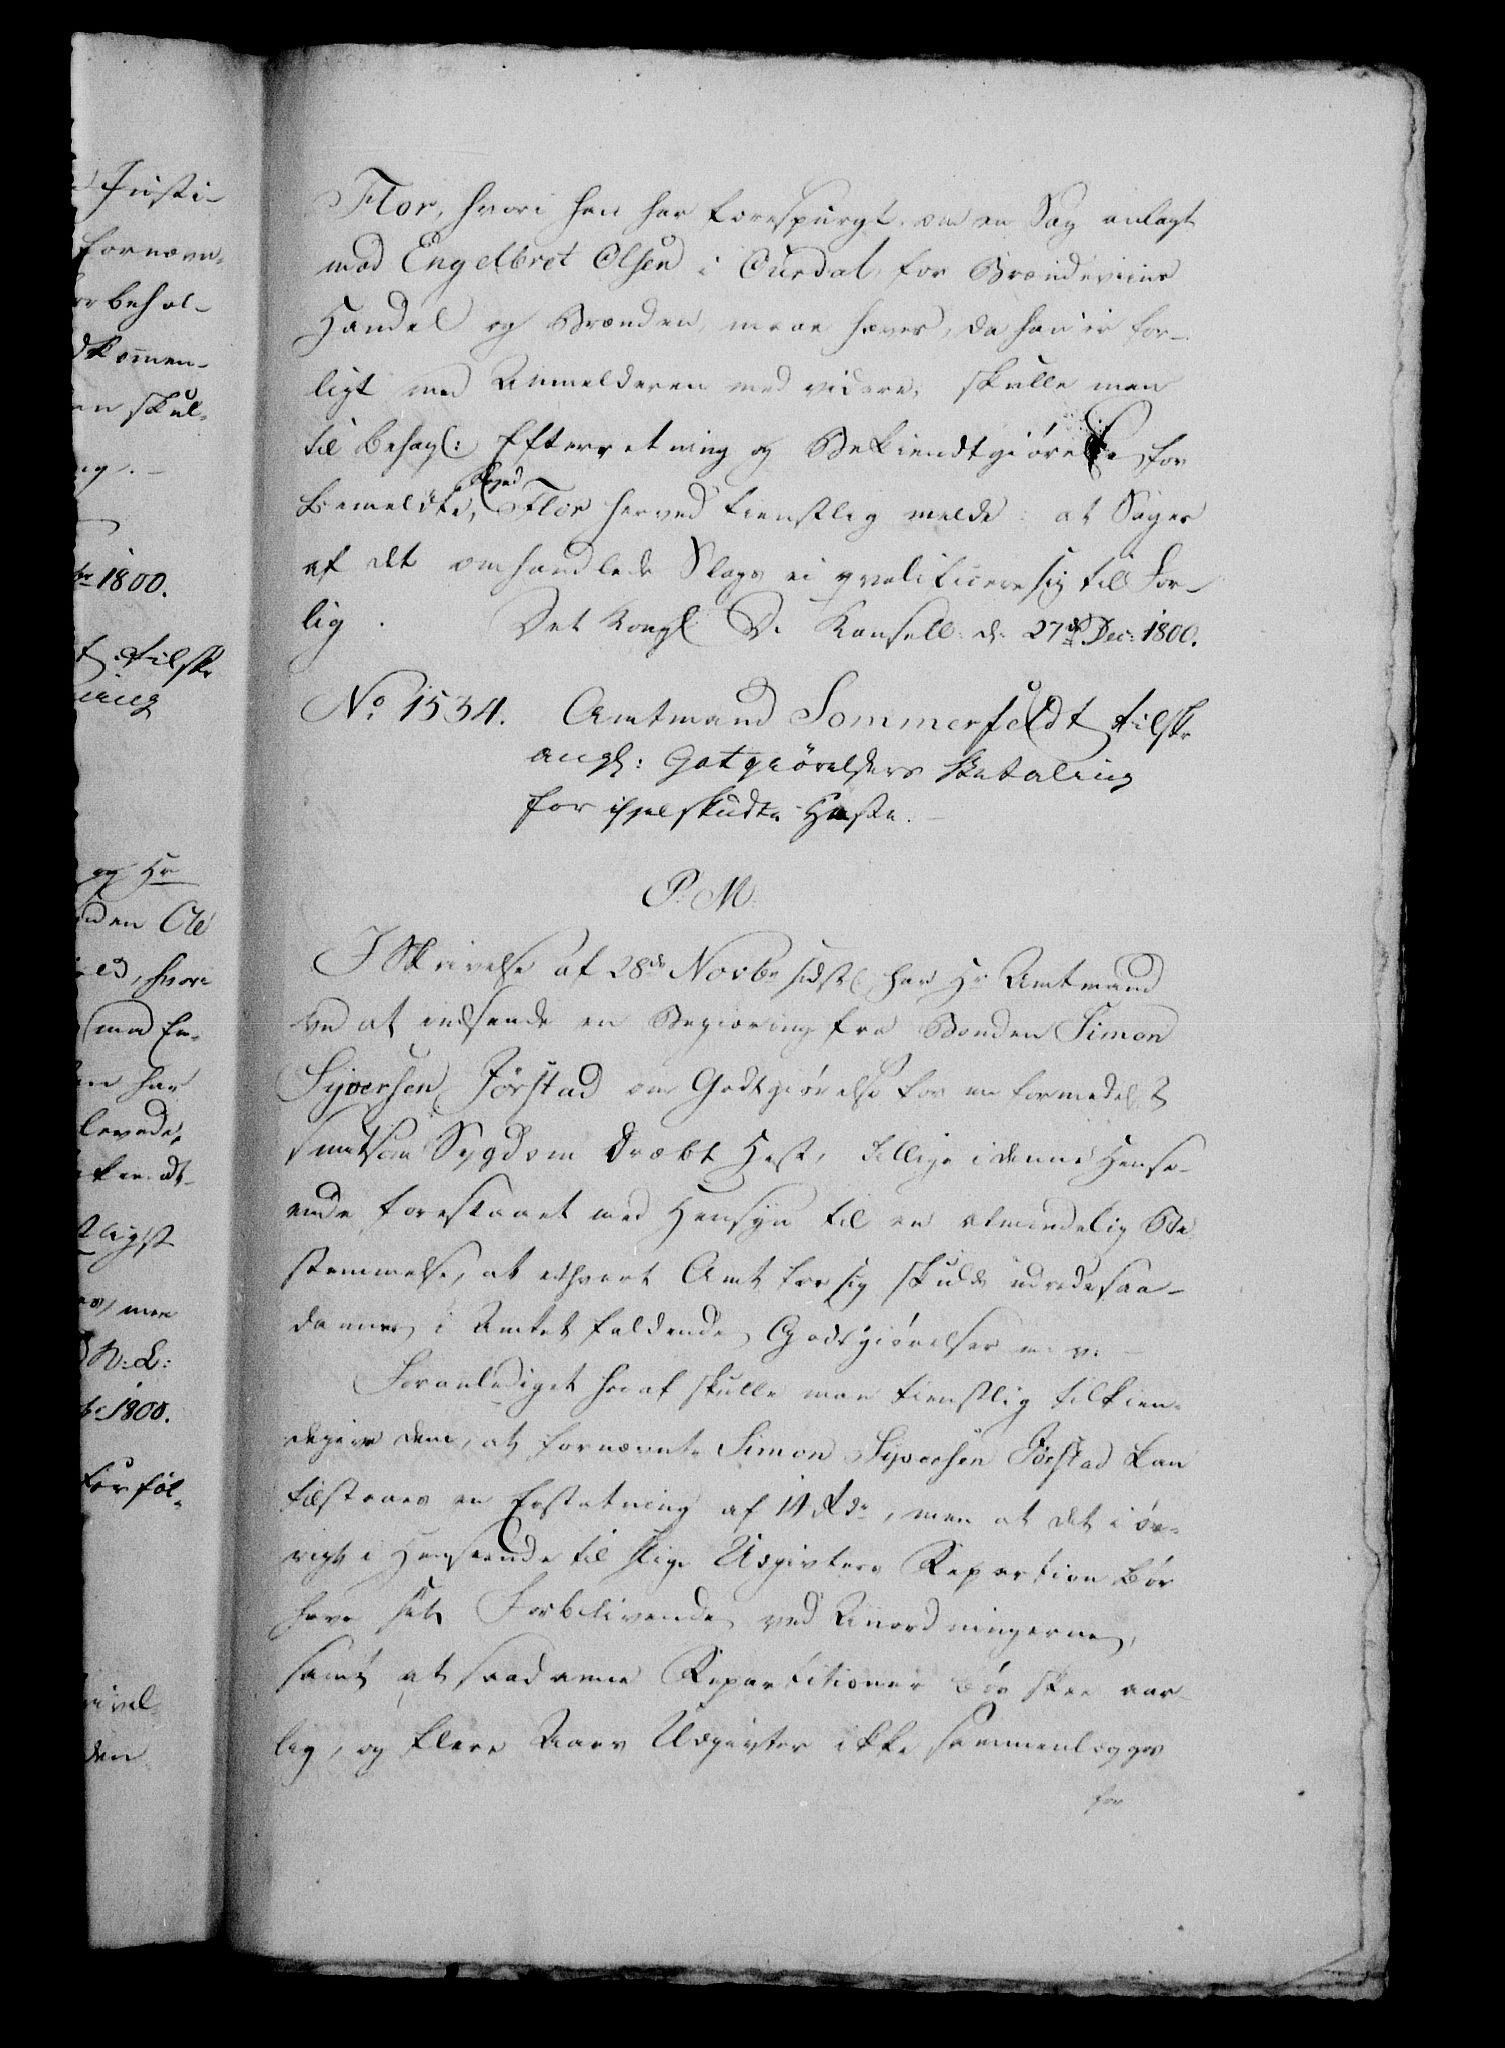 Flor, hvori han har forespurgt om en Sag anlagt
mod Engelbret Olsen i Ourdal, for Brændeviins
Handel og Brænden, maae hæves, da han er for-
ligt med Anmelderen med videre, skulle man
til behagl: Efterretning og Bekiendtgiørelse for
bemeldte Foged Flor herved tienstlig melde: at Sager
af det omhandlede Slags ei qvalificere sig til For-
lig. Det Kongl: D. Kansell: d: 27de Dec: 1800.
No 1534. Amtmand Sommerfeldt tilskr
angl: Godtgiørelsers Betaling
for ihielskudte Heste.
P. M.
I Skrivelse af 28de Novbr sidstl: har Hr Amtmand
ved at indsende en Begiæring fra Bonden Simon
Syversen Jørstad om Godtgiørelse for en formedelst
smitsom Sygdom dræbt Hest, tillige i denne Hense-
ende forestaaet med Hensyn til en almindelig Be-
stemmelse, at ethvert Amt for sig skulde udrede saa-
danne i Amtet faldende Godtgiørelser m. v. -
Foranlediget heraf skulle man tienstlig tilkien-
degive dem, at fornævnte Simon Syversen Jørstad kan
tilstaaes en Erstatning af 14 Rdr, men at det i øv-
rigt i Henseende til slige Udgivters Repartion bør
have sit Forblivende ved Anordningerne,
samt at saadanne Repartitioner bør skee aar-
lig, og flere Aars Udgivter ikke sammenlægges
for
Justi-
fornævn-
behol-
dkommen-
en skul-
1800.
tilskr
og Hr
den Ole
hvori
med En-
har
levede
men
R: L:
1800.
for føl-
den